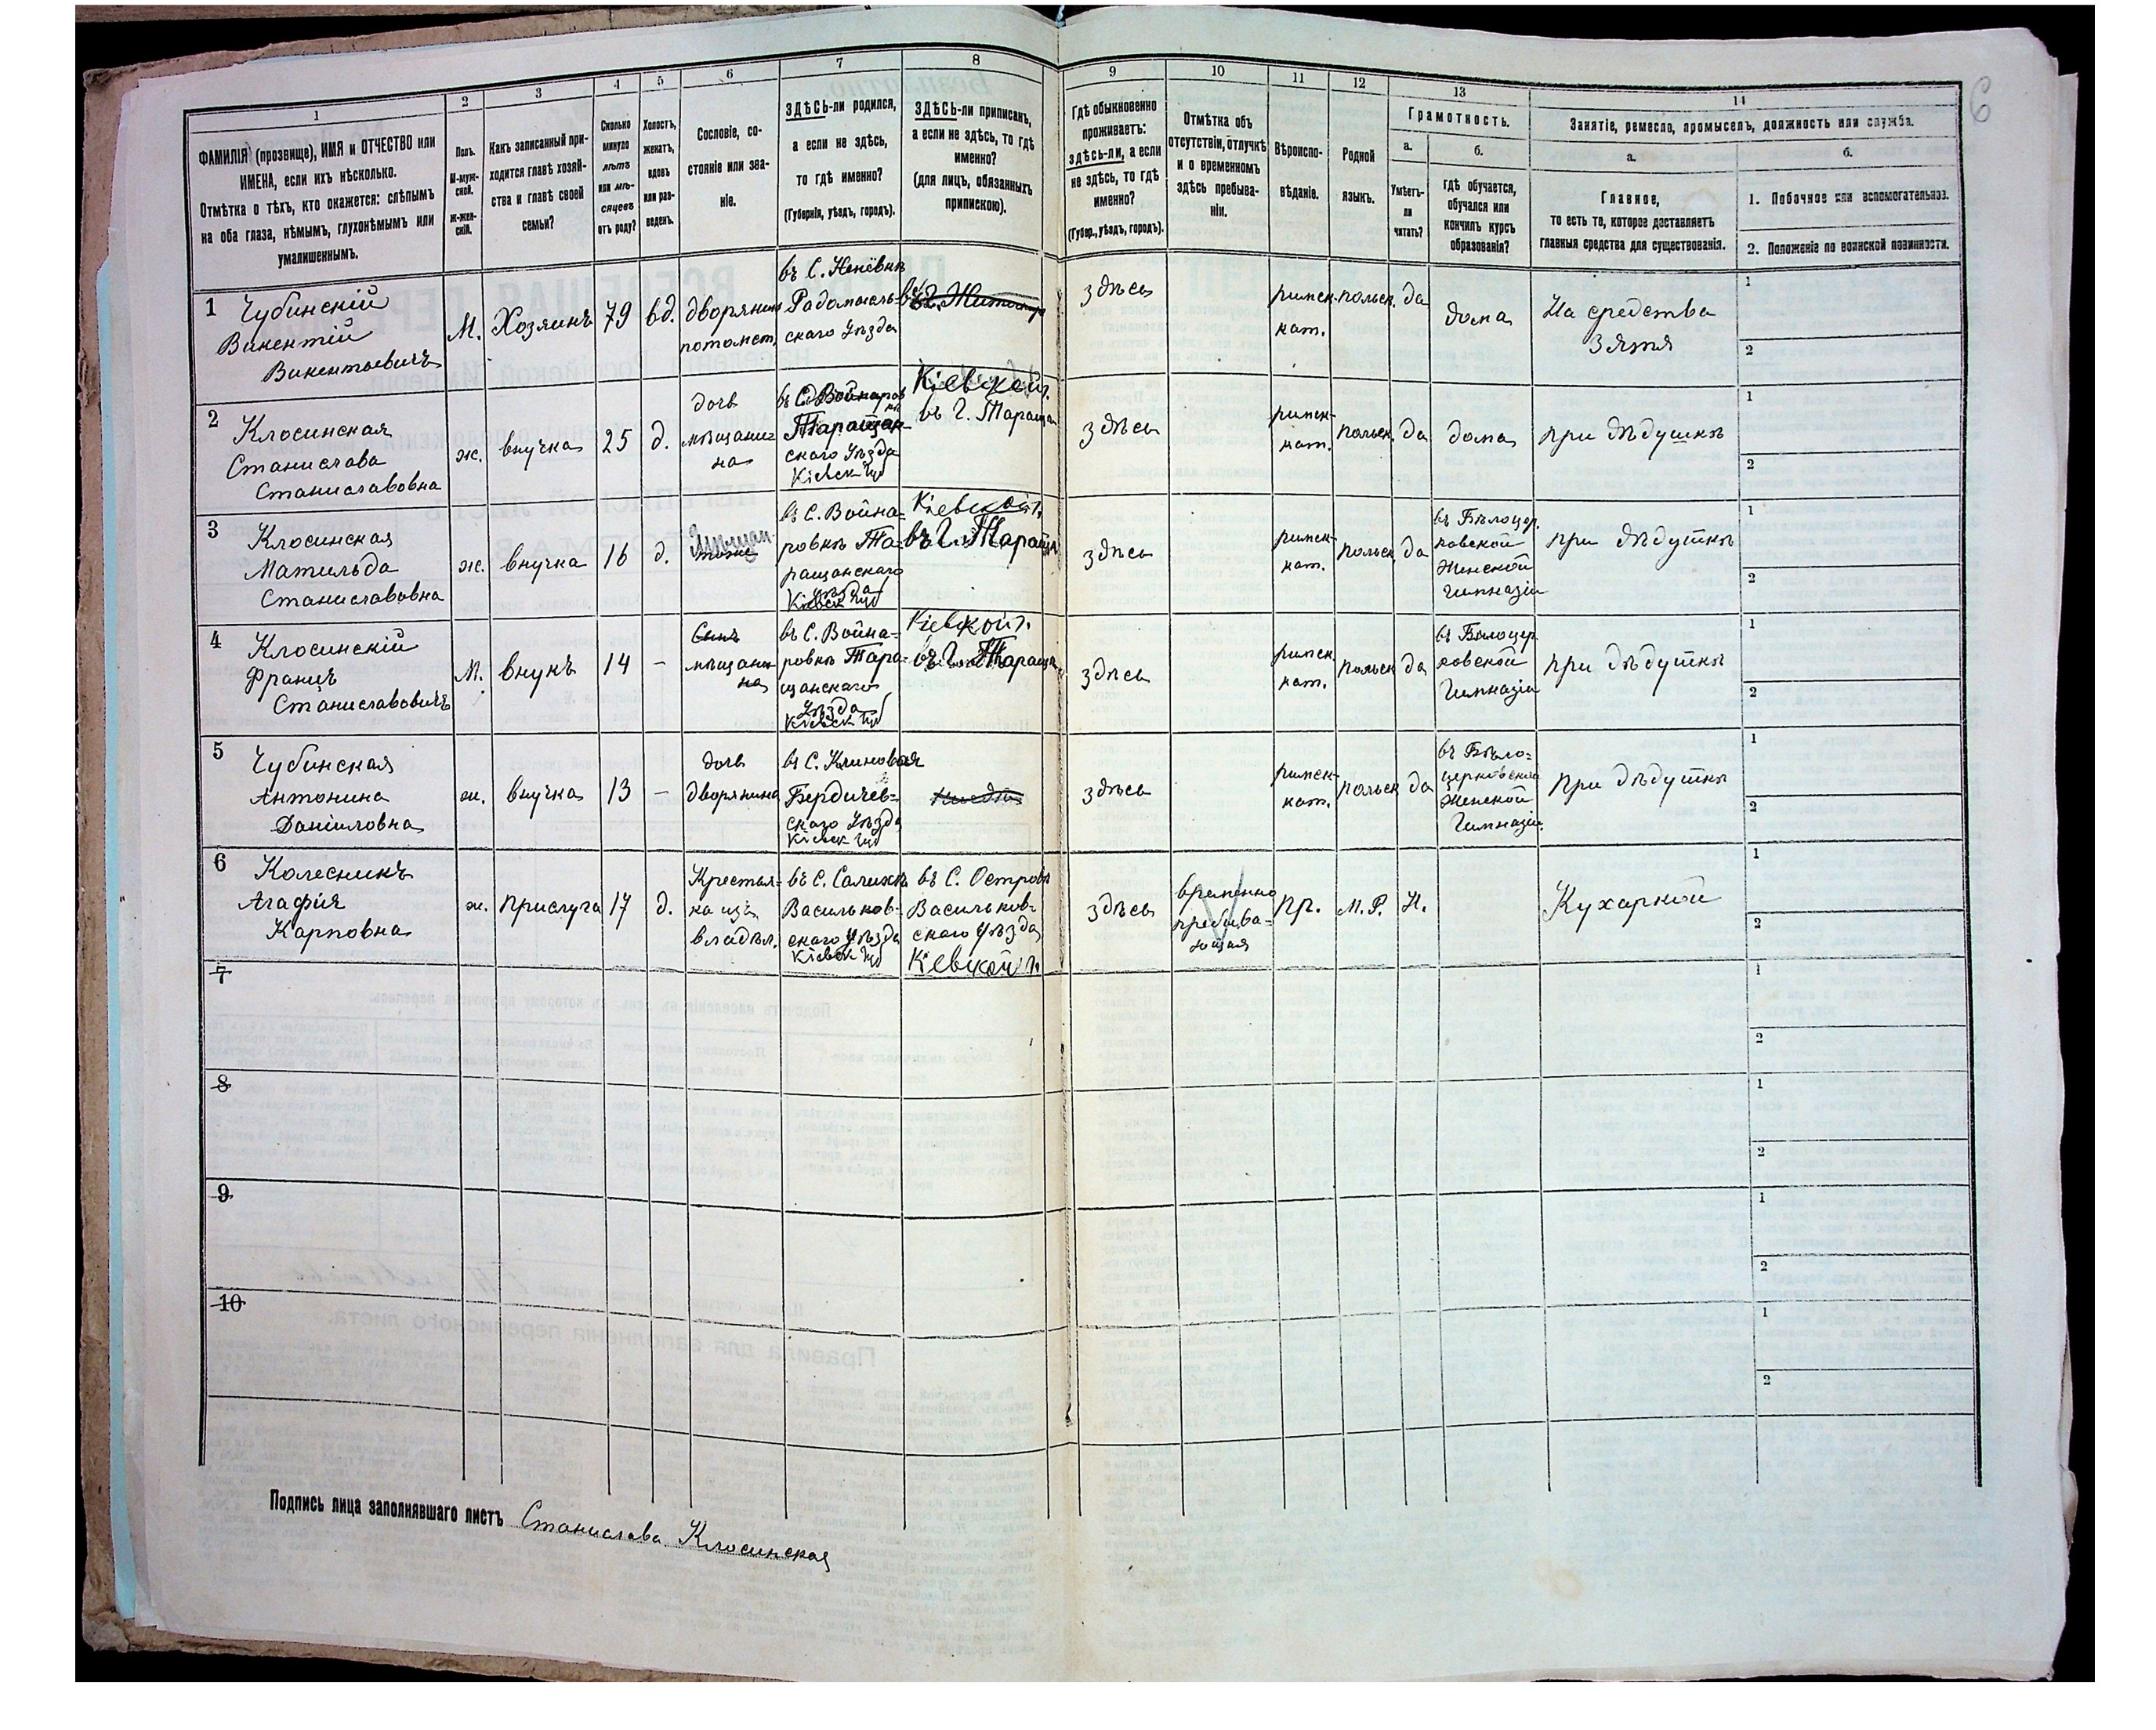 1
2
3
4
5
6
7
8
9
10
11
12
13
14
6
ФАМИЛІЯ (прозвище), ИМЯ и ОТЧЕСТВО или
ИМЕНА, если ихъ нѣсколько.
Отмѣтка о тѣхъ, кто окажется: слѣпымъ
на оба глаза, нѣмымъ, глухонѣмымъ или
умалишеннымъ.
Полъ.
М-муж-
ской.
Ж-жен-
скій.
Какъ записанный при-
ходится главѣ хозяй-
ства и главѣ своей
семьи?
Сколько
минуло
лѣтъ
или мѣ-
сяцевъ
отъ роду?
Холостъ,
женатъ,
вдовъ
или раз-
веденъ.
Сословіе, со-
стояніе или зва-
ніе.
ЗДѢСЬ-ли родился,
а если не здѣсь,
то гдѣ именно?
(Губернія, уѣздъ, городъ).
ЗДѢСЬ-ли приписанъ,
а если не здѣсь, то гдѣ
именно?
(для лицъ, обязанныхъ
припискою).
Гдѣ обыкновенно
проживаетъ:
здѣсь-ли, а если
не здѣсь, то гдѣ
именно?
(Губер., уѣздъ, городъ).
Отмѣтка объ
отсутствіи, отлучкѣ
и о временномъ
здѣсь пребыва-
ніи.
Вѣроиспо-
вѣданіе.
Родной
языкъ.
Грамотность.
а.
Умѣетъ-
ли
читать?
б.
гдѣ обучается,
обучался или
кончилъ курсъ
образованія?
Занятіе, ремесло, промыселъ, должность или служба.
а.
Главное,
то есть то, которое доставляетъ
главныя средства для существованія.
б.
1. Побочное или вспомогательное.
2. Положеніе по воинской повинности.
1
Чубинскій
Викентій
Викентьевичъ
М.
Хозяинъ
79
вд.
дворянин
потомст.
въ С.
Радомысль-
скаго Уѣзда
здѣсь
римск.
кат.
польск.
да
дома
На средства
Зятя
1
2
2
Клосинская
Станислава
Станиславовна
ж.
внучка
25
д.
дочь
мѣщани-
на
въ С. Войнаров
кѣ
Таращан-
скаго Уѣзда
Кіевск губ
Кіевской г.
въ Г. Тараща
здѣсь
римск-
кат.
польск.
да
дома
при дѣдушкѣ
1
2
3
Клосинская
Матильда
Станиславовна
ж.
внучка
16
д.
въ С. Война-
ровкѣ Та-
ращанскаго
уѣзда
Кіевск губ
Кіевской г.
въ Г. Тараща
здѣсь
римск-
кат.
польск.
да
въ Бѣлоцер.
ковской
Женской
гимназіи
при дѣдушкѣ
1
2
4
Клосинскій
Францъ
Станиславовичъ
М.
внукъ
14
-
Сынъ
мѣщани-
на
въ С. Война-
ровкѣ Тара-
щанскаго
Уѣзда
Кіевск губ
Кіевской г.
въ Г. Тараща
здѣсь
римск
кат.
польск
да
въ Бѣлоцер
ковской
Гимназіи
при дѣдушкѣ
1
2
5
Чубинская
Антонина
Даніиловна
ж.
внучка
13
-
дочь
дворянина
въ С. Клиновая
Бердичев-
скаго Уѣзда
Кіевск губ
здѣсь
римск-
кат.
польск
да
въ Бѣло-
церковской
Женской
Гимназіи.
при дѣдушкѣ
1
2
6
Колесникъ
Агафія
Карповна
ж.
прислуга
17
д.
Крестьян-
ка изъ
владѣл.
въ С. Салихѣ
Васильков-
скаго Уѣзда
Кіевск губ
въ С. Островѣ
Васильков-
скаго Уѣзда
Кіевской г.
здѣсь
временно
пребыва-
ющая
пр.
М.Р.
Н.
Кухаркой
1
2
7
1
2
8
1
2
9
1
2
10
1
2
Подпись лица заполнявшаго листъ Станислава Клосинская